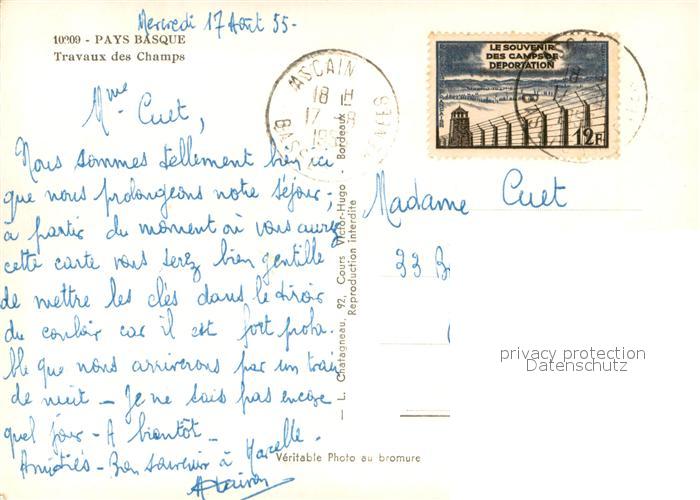 Mercredi 17 Août 55-
10209 - PAYS BASQUE
Travaux des Champs
Mme Cuet,
Nous sommes tellement bien ici
que nous prolongeons notre séjour;
à partir du moment où vous aurez
cette carte vous serez bien gentille
de mettre les clés dans le tiroir
du couloir car il est fort proba-
ble que nous arriverons par un train
de nuit - Je ne sais pas encore
quel jour - A bientôt -
Amitiés - Bon souvenir à Marcelle -
ASCAIN
18 H
17 - 8
LE SOUVENIR
DES CAMPS DE
DEPORTATION
12F
— L. Chatagneau, 92, Cours Victor-Hugo - Bordeaux
Reproduction interdite
Véritable Photo au bromure
Madame Cuet
33 B
privacy protection
Datenschutz